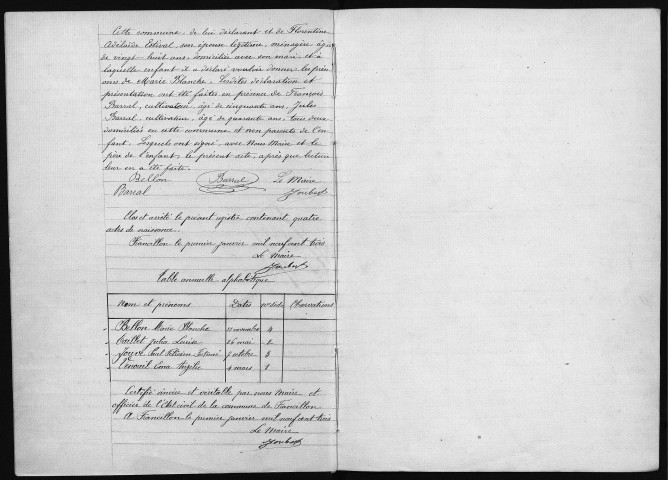 Cette commune, de lui déclarant et de Florentine
Adélaïde Estival, son épouse légitime, ménagère âgée
de vingt-huit ans, domiciliée avec son mari, et à
laquelle enfant il a déclaré vouloir donner les prén
oms de Marie Blanche. Lesdites déclaration et
présentation ont été faites en présence de François
Barral, cultivateur, âgé de cinquante ans, Jules
Barral, cultivateur, âgé de quarante ans, tous deux
domiciliés en cette commune et non parents de l'en
fant. Lesquels ont signé, avec Nous Maire et le
père de l'enfant, le présent acte, après que lecture
leur en a été faite.
Bellon Barral Le Maire
Barral Joubert
Clos et arrêté le présent registre contenant quatre
actes de naissance.
Francillon le premier janvier mil neuf cent trois
Le Maire
Joubert
Table annuelle alphabétique
Nom et prénoms Dates Observations
Bellon Marie Blanche 11 novembre 4
Julia Louise 26 mai 2
Paul 7 octobre 3
4 mars 1
Certifié sincère et véritable par nous Maire et
officier de l'Etat civil de la commune de Francillon
A Francillon le premier janvier mil neuf cent trois
Le Maire
Joubert